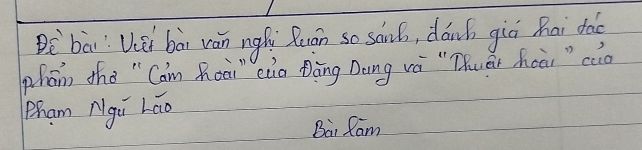 Đề bài: Viết bài văn nghị luận so sánh, đánh giá hai tác
phẩm thơ "Cảm hoài" của Đặng Dung và "Thuật hoài" của
Phạm Ngũ Lão
Bài làm